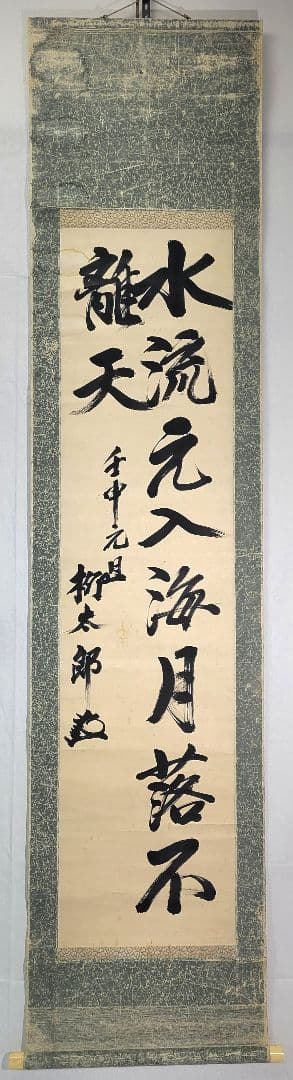 水流元入海月落不
離天
壬申元旦
柳太郎